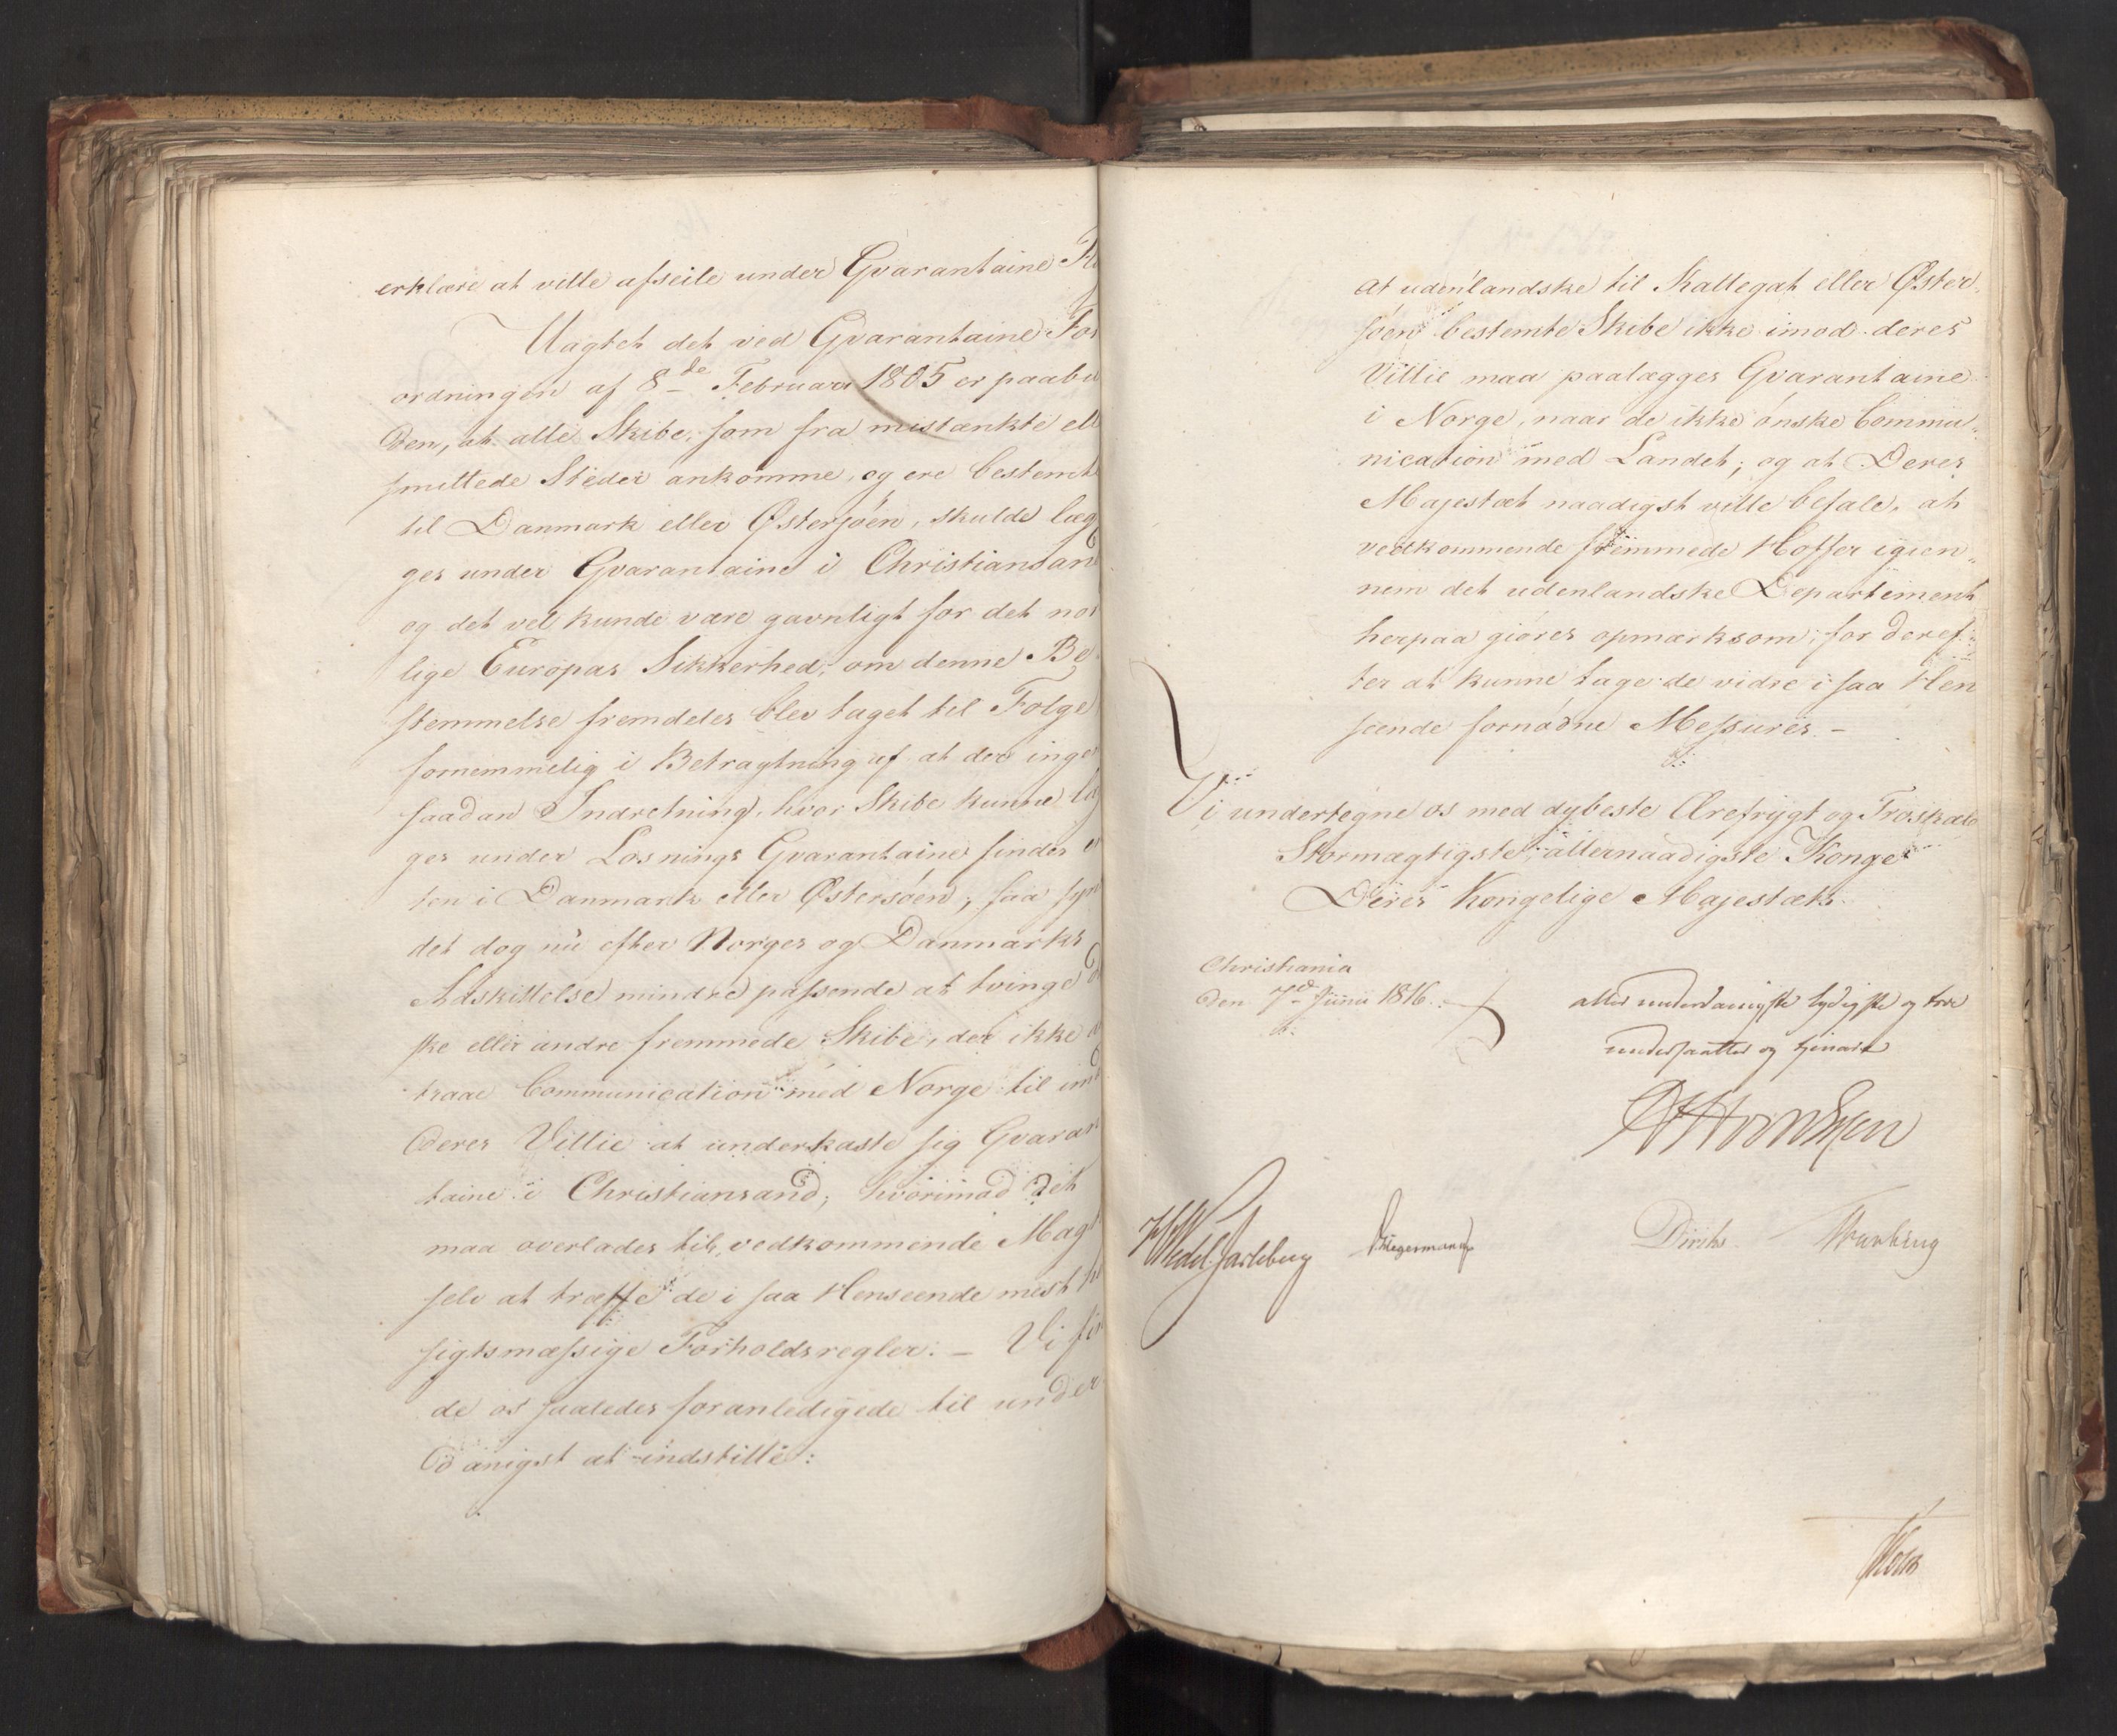 erklære at ville afseile under Gvarantaine
Uagtet det ved Gvarantaine For
ordningen af 8de Februar 1805 er paabu
den, at alle Skibe, som fra mistænkte ell
smittede Steder ankomme, og ere bestemte
til Danmark eller Østersøen, skulde læg
ges under Gvarantaine i Christiansand
og det vel kunde være gavnligt for det nor
lige Europas Sikkerhed, om denne Be
stemmelse fremdeles blev taget til Følge
fornemmelig i Betragtning af at der ingen
saadan Indretning, hvor Skibe kunne læg
ges under Losnings Gvarantaine findes en
ten i Danmark eller Østersøen, saa syn
det dog nu efter Norges og Danmarks
Adskillelse mindre passende at tvinge
ske eller andre fremmede Skibe, der ikke
traae Communication med Norge til imod
deres Villie at underkaste sig Gvaran
taine i Christiansand, hvorimod det
maa overlades til vedkommende Magt
selv at træffe de i saa Henseende mest
sigtsmæssige Forholdsregler. – Vi fin
de os saaledes foranledigede til under
danigst at indstille:
at udenlandske til Kattegat eller Øster
søen bestemte Skibe ikke imod deres
Villie maa paalægges Gvarantaine
i Norge, naar de ikke ønske Commu-
nication med Landet; og at Deres
Majestæt naadigst ville befale, at
vedkommende fremmede Hoffer igien-
nem det udenlandske Departement
herpaa giøres opmærksom, for deref-
ter at kunne tage de vidre i saa Hen
seende fornødne Messures. –
Vi undertegne os med dybeste Ærefrygt og Troskab
Stormægtigste, allernaadigste Konge
Deres Kongelige Majestæts
Christiania
den 7de Junii 1816.
aller underdanigste lydigste og troe
undersaatter og tjenere
HWedel Jarlsberg
Kriegermann
Diriks